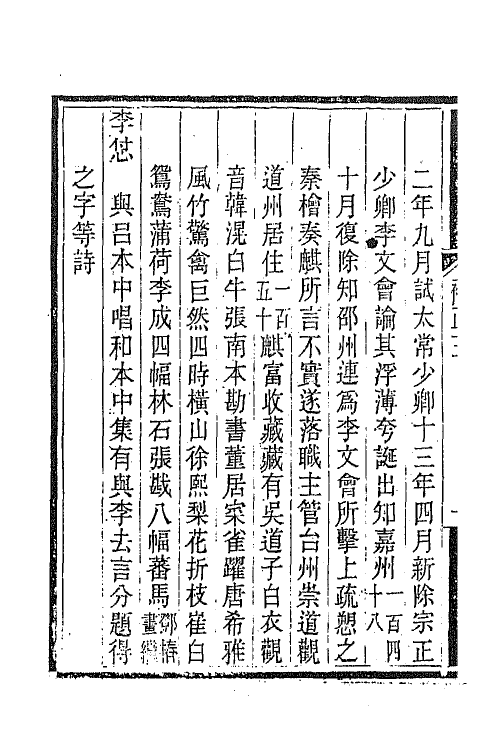 二年九月試太常少卿十三年四月新除宗正
少卿李文會論其浮薄夸誕出知嘉州一百四十八
十月復除知邵州連爲李文會所擊上疏愬之
秦檜奏麒所言不實遂落職主管台州崇道觀
道州居住一百五十麒富收藏藏有吳道子白衣觀
音韓滉白牛張南本勘書董居宋雀躍唐希雅
風竹驚禽巨然四時橫山徐熙梨花折枝崔白
鴛鴦蒲荷李成四幅林石張戡八幅蕃馬鄧椿畫繼
李愆　與呂本中唱和本中集有與李去言分題得
之字等詩